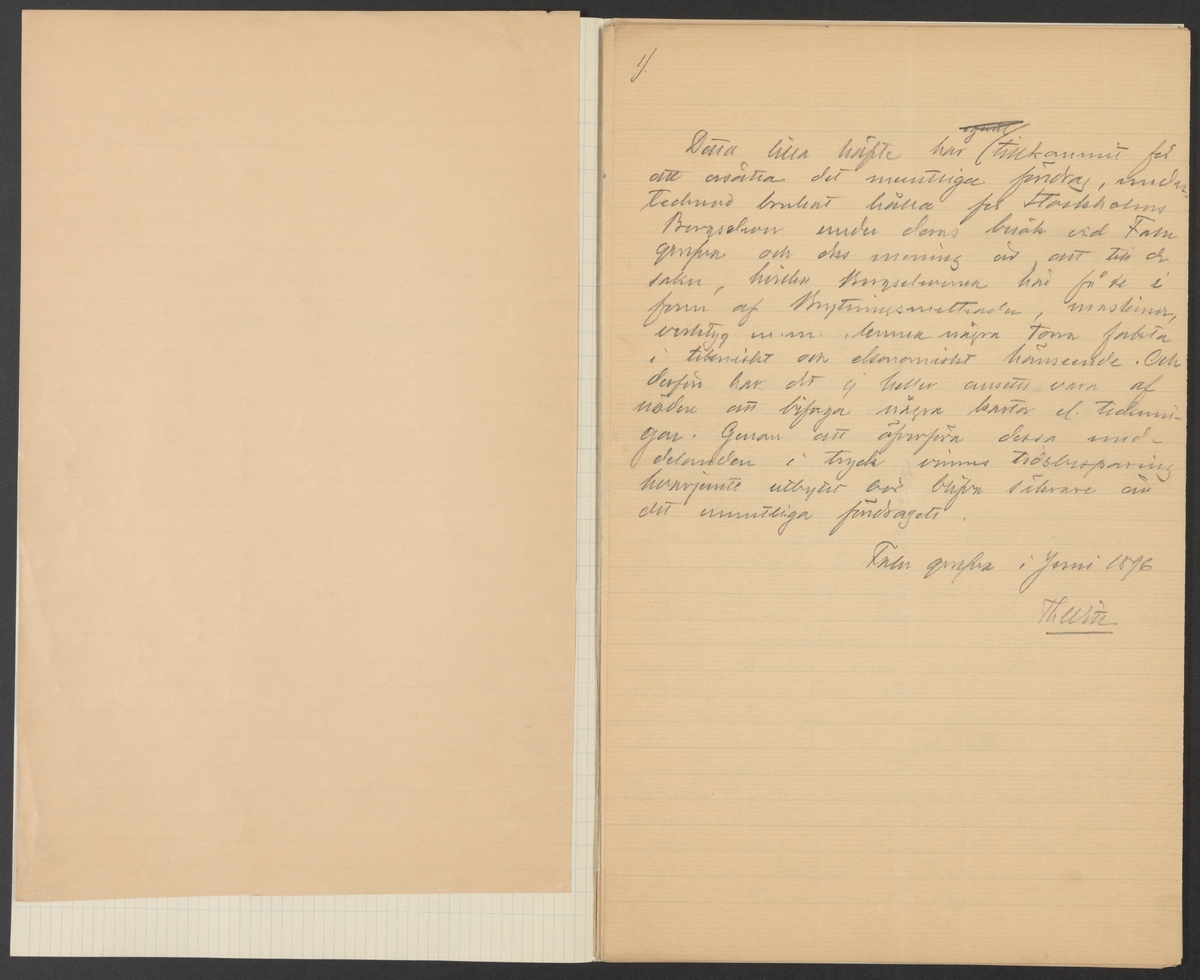 1/.
Detta lilla häfte har tillkommit för
att ersätta det muntliga föredrag, under-
tecknad brukat hålla för Stockholms
Bergselever under deras besök vid Falu
grufva och dess mening är att till de
saker, hvilka Bergseleverna här få se i
form af Brytningsmethoder, maskiner,
verktyg m.m. lemna några torra fakta
i tekniskt och ekonomiskt hänseende. Och
derför har det ej heller ansetts vara af
nöden att bifoga några kartor el. teckni-
gar. Genom att öfverföra dessa med-
delanden i tryck vinnes tidsbesparing
hvarjemte utbytet bör blifva säkrare än
det muntliga föredragets.
Falu grufva i Juni 1896